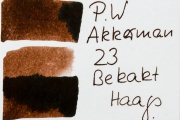 P.W
Akkerman
23
Bekakt
Haags